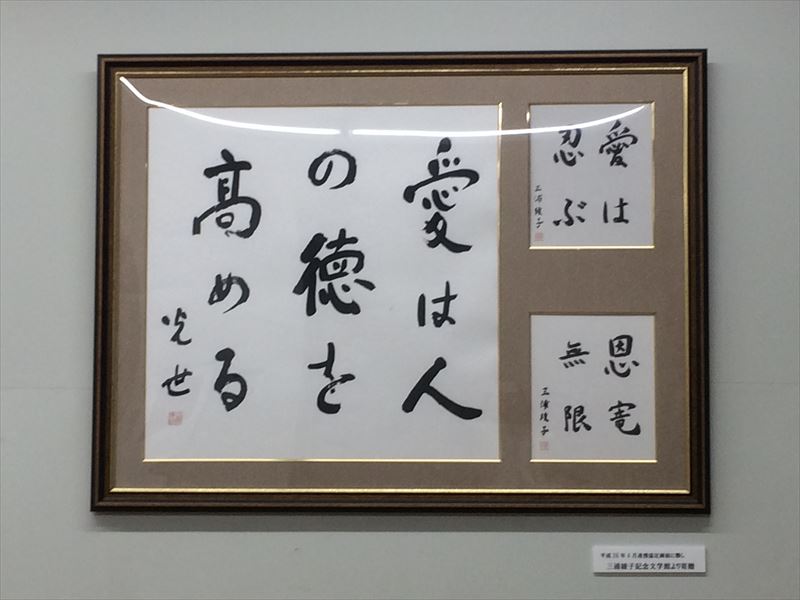 愛は人
の徳を
高める
光世
愛は
忍ぶ
三浦綾子
恩寵
無限
三浦綾子
平成26年4月連携協定締結に際し
三浦綾子記念文学館より寄贈